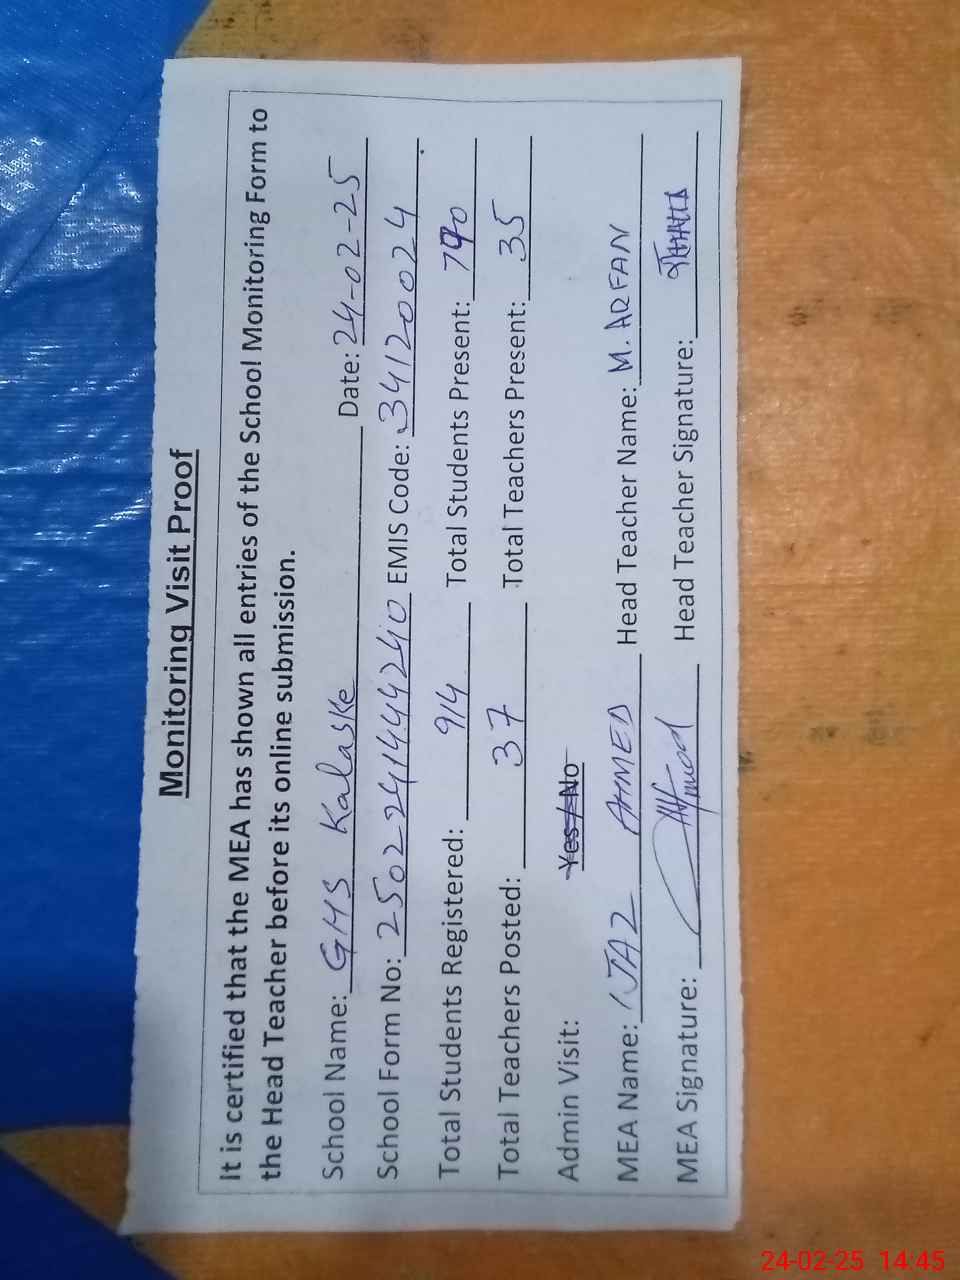 Monitoring Visit Proof
It is certified that the MEA has shown all entries of the School Monitoring Form to
the Head Teacher before its online submission.
School Name: GHS Kalaske Date: 24-02-25
School Form No: 2502241444240 EMIS Code: 34120024
Total Students Registered: 914 Total Students Present: 790
Total Teachers Posted: 37 Total Teachers Present: 35
Admin Visit: Yes / No
MEA Name: IJAZ AHMED Head Teacher Name: M. ARFAN
MEA Signature: Head Teacher Signature:
24-02-25 14:45